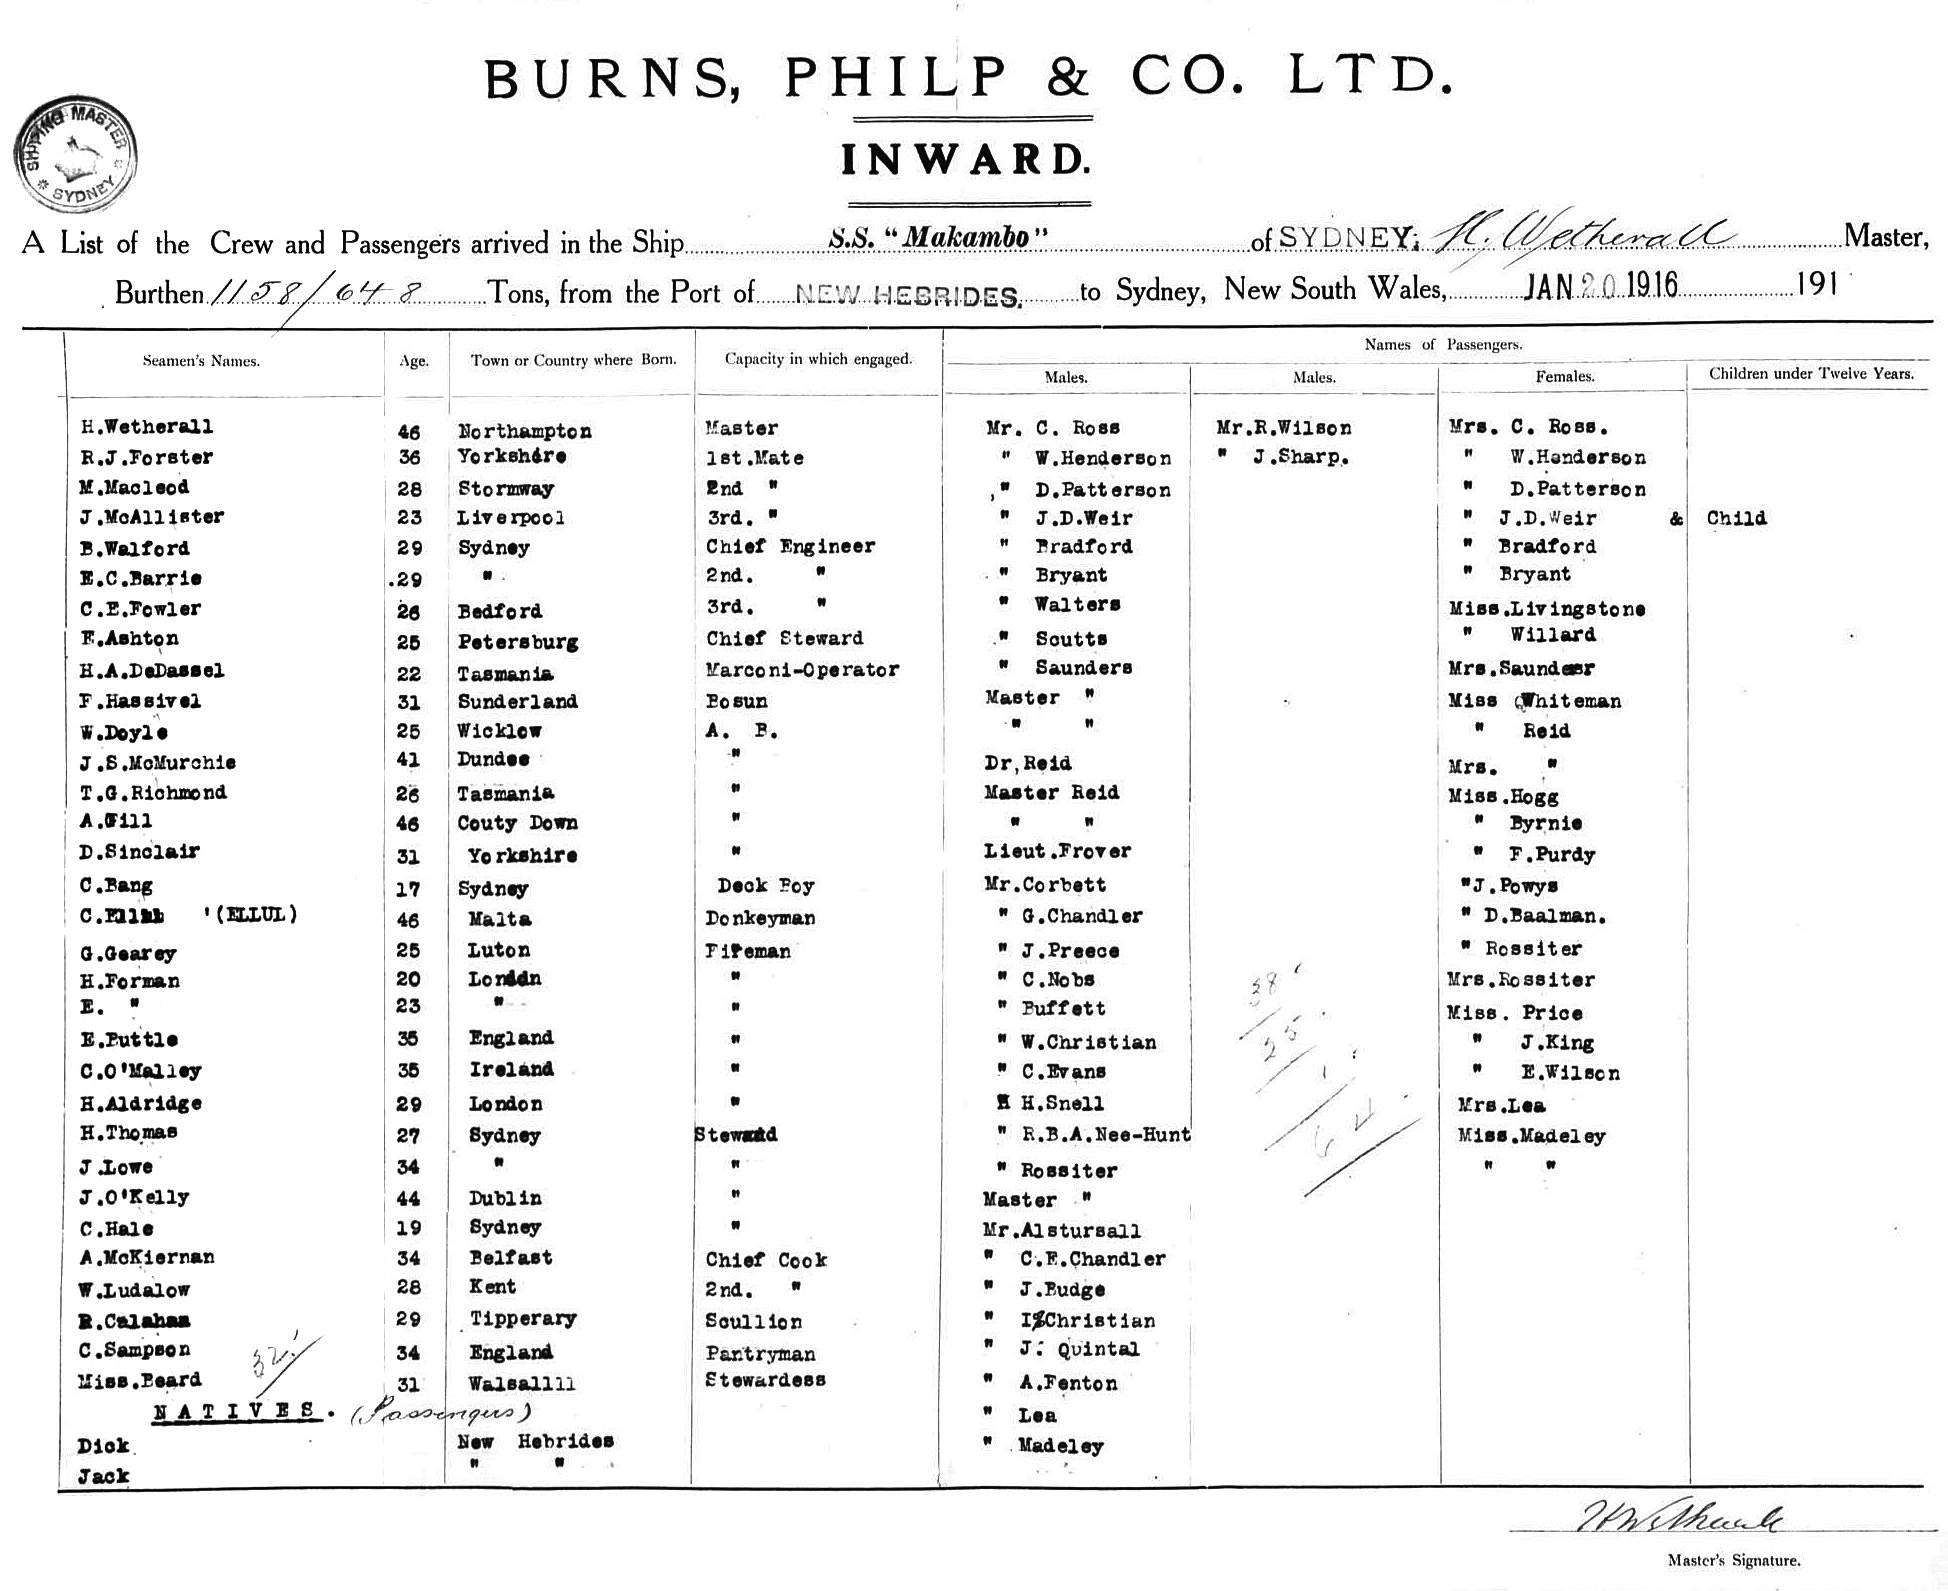 BURNS, PHILP & CO. LTD.
INWARD.
SHIPPING MASTER
* SYDNEY *
A List of the Crew and Passengers arrived in the Ship S.S. "Makambo" of SYDNEY; H. Wetherall Master,
Burthen 1158/648 Tons, from the Port of NEW HEBRIDES. to Sydney, New South Wales, JAN 20 1916 191
Names of Passengers.
Seamen's Names. Age. Town or Country where Born. Capacity in which engaged. Males. Males. Females. Children under Twelve Years.
H.Wetherall 46 Northampton Master Mr. C. Ross Mr.R.Wilson Mrs. C. Ross.
R.J.Forster 36 Yorkshire 1st.Mate " W.Henderson " J.Sharp. " W.Henderson
M.Macleod 28 Stornway 2nd " " D.Patterson " D.Patterson
J.McAllister 23 Liverpool 3rd. " " J.D.Weir " J.D.Weir & Child
B.Walford 29 Sydney Chief Engineer " Bradford " Bradford
E.C.Barrie .29 " 2nd. " " Bryant " Bryant
C.E.Fowler 26 Bedford 3rd. " " Walters Miss.Livingstone
E.Ashton 25 Petersburg Chief Steward " Scutts " Willard
H.A.DeDassel 22 Tasmania Marconi-Operator " Saunders Mrs.Saundesr
F.Hassivel 31 Sunderland Bosun Master " Miss Whiteman
W.Doyle 25 Wicklow A. B. " " " Reid
J.S.McMurchie 41 Dundee " Dr,Reid Mrs. "
T.G.Richmond 26 Tasmania " Master Reid Miss.Hogg
A.Gill 46 Couty Down " " " " Byrnie
D.Sinclair 31 Yorkshire " Lieut.Frover " F.Purdy
C.Bang 17 Sydney Deck Boy Mr.Corbett "J.Powys
C. '(ELLUL) 46 Malta Donkeyman " G.Chandler " D.Baalman.
G.Gearey 25 Luton Fireman " J.Preece " Rossiter
H.Forman 20 London " " C.Nobs Mrs.Rossiter
E. " 23 " " " Buffett Miss. Price
E.Puttle 35 England " " W.Christian " J.King
C.O'Malley 35 Ireland " " C.Evans " E.Wilson
H.Aldridge 29 London " " H.Snell Mrs.Lea
H.Thomas 27 Sydney Steward " R.B.A.Nee-Hunt Miss.Madeley
J.Lowe 34 " " " Rossiter " "
J.O'Kelly 44 Dublin " Master "
C.Hale 19 Sydney " Mr.Alstursall
A.McKiernan 34 Belfast Chief Cook " C.E.Chandler
W.Ludalow 28 Kent 2nd. " " J.Budge
R.Calahan 29 Tipperary Scullion " I.Christian
C.Sampson 34 England Pantryman " J. Quintal
Miss.Beard 31 Walsallll Stewardess " A.Fenton
NATIVES. (Passengers) " Lea
Dick New Hebrides " Madeley
Jack " "
32
38
25
1
64
H Wetherall
Master's Signature.